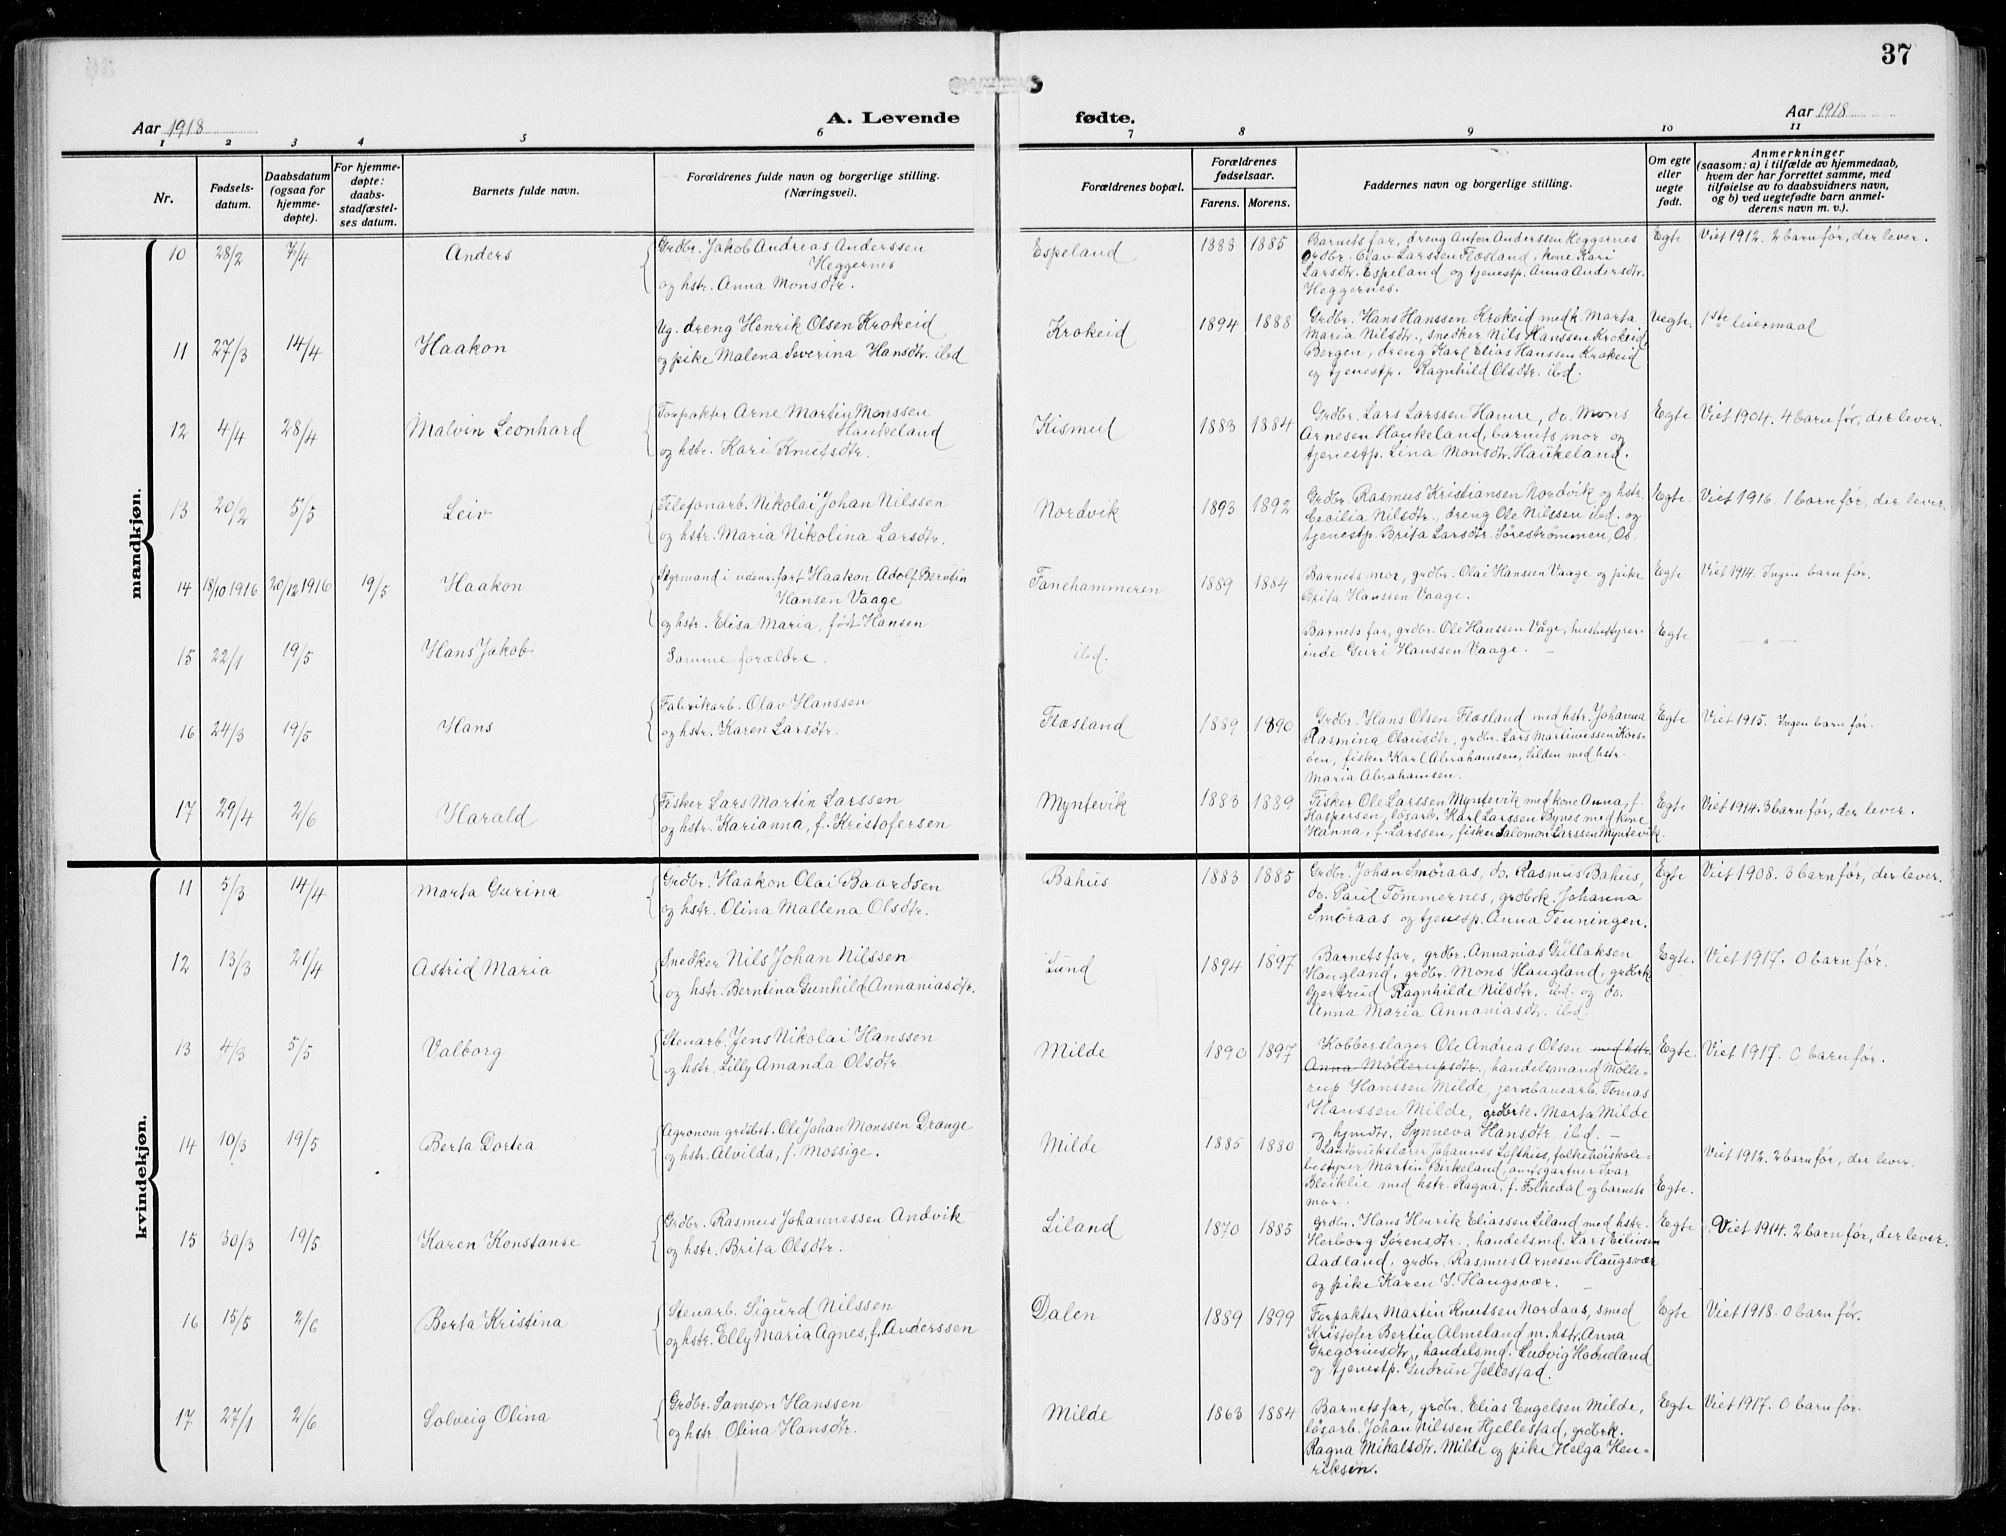 37
A. Levende fødte.
Aar 1918
Aar 1918
1 2 3 4 5 6 7 8 9 10 11
Nr.
Fødsels-
datum.
Daabsdatum
(ogsaa for
hjemme-
døpte).
For hjemme-
døpte:
daabs
stadfæstel-
ses datum.
Barnets fulde navn.
Forældrenes fulde navn og borgerlige stilling.
(Næringsvei).
Forældrenes bopæl.
Forældrenes
fødselsaar.
Farens. Morens.
Faddernes navn og borgerlige stilling.
Om egte
eller
uegte
født.
Anmerkninger
(saasom: a) i tilfælde av hjemmedaab,
hvem der har forrettet samme, med
tilføielse av to daabsvidners navn,
og b) ved uegtefødte barn anmel-
derens navn m. v.).
mandkjøn.
10 28/2 7/4 Anders
Grdbr. Jakob Andreas Anderssen
Heggernes
og hstr. Anna Monsdtr.
Espeland 1883 1885
Barnets far, dreng Anton Anderssen Heggernes
Grdbr. Olav Larssen Flæsland, kone Kari
Larsdtr. Espeland og tjenestp. Anna Andersdtr.
Heggernes.
Egte Viet 1912. 2 barn før, der lever.
11 27/3 14/4 Haakon
Ug. dreng Henrik Olsen Krokeid
og pike Malena Severina Hansdtr. ibd
Krokeid 1894 1888
Grdbr. Hans Hanssen Krokeid med k. Marta
Maria Nilsdtr., snedker Nils Hanssen Krokeid,
Bergen, dreng Karl Elias Hanssen Krokeid
og tjenestp. Ragnhild Olsdtr. ibd.
Uegte. 1ste leiermaal
12 4/4 28/4 Malvin Leonhard
Forpakter Arne Martin Monssen
Haukeland
og hstr. Kari Knutsdtr.
Kismul 1883 1884
Grdbr. Lars Larssen Hamre, do. Mons
Arnesen Haukeland, barnets mor og
tjenestp. Lina Monsdtr. Haukeland.
Egte Viet 1904. 4 barn før, der lever.
13 20/2 5/5 Leiv
Telefonarb. Nikolai Johan Nilssen
og hstr. Maria Nikolina Larsdtr.
Nordvik 1893 1892
Grdbr. Rasmus Kristiansen Nordvik og hstr.
Cecilia Nilsdtr., dreng Ole Nilssen ibd. og
tjenestp. Brita Larsdtr. Sørestrømmen, Os.
Egte. Viet 1916. 1 barn før, der lever.
14 18/10 1916 20/12 1916 19/5 Haakon
Styrmand i udenr. fart Haakon Adolf Berntin
Hansen Vaage
og hstr. Elisa Maria, født Hansen
Fanehammeren 1889 1884
Barnets mor, grdbr. Olai Hanssen Vaage og pike
Brita Hanssen Vaage.
Egte Viet 1914. Ingen barn før.
15 22/1 19/5 Hans Jakob
Samme forældre.
ibd.
Barnets far, grdbr. Ole Hanssen Våge, husbestyrer-
inde Guri Hanssen Vaage. —
Egte. — „ —
16 24/3 19/5 Hans
Fabrikarb. Olav Hanssen
og hstr. Karen Larsdtr.
Flæsland 1889 1890
Grdbr. Hans Olsen Flæsland med hstr. Johanna
Rasmina Olausdtr., grdbr. Lars Martinussen Kors-
øen, fisker Karl Abrahamsen, Silden med hstr.
Maria Abrahamsen.
Egte Viet 1915. Ingen barn før.
17 29/4 2/6 Harald
Fisker Lars Martin Larssen
og hstr. Karianna, f. Kristofersen
Myntevik 1883 1889
Fisker Ole Larssen Myntevik med kone Anna, f.
Kaspersen, løsarb. Karl Larssen Bynes med kone
Hanna, f. Larssen, fisker Salomon Larssen Myntevik.
Egte Viet 1914. 3 barn før, der lever.
kvindekjøn.
11 5/3 14/4 Marta Gurina
Grdbr. Haakon Olai Baardsen
og hstr. Olina Mallena Olsdtr.
Bahus 1883 1885
Grdbr. Johan Smøraas, do. Rasmus Bahus,
do. Paul Tømmernes, grdbrk. Johanna
Smøraas og tjenesp. Anna Tenningen.
Egte Viet 1908. 3 barn før, der lever.
12 13/3 21/4 Astrid Maria
Snedker Nils Johan Nilssen
og hstr. Berntina Gunhild Annaniasdtr.
Lund 1894 1897
Barnets far, grdbr. Annanias Gullaksen
Haugland, grdbr. Mons Haugland, grdbrk.
Gjertrud Ragnhilde Nilsdtr. ibd. og do.
Anna Maria Annaniasdtr. ibd.
Egte. Viet 1917. 0 barn før.
13 4/3 5/5 Valborg
Stenarb. Jens Nikolai Hanssen
og hstr. Lilly Amanda Olsdtr.
Milde 1890 1897
Kobberslager Ole Andreas Olsen med hstr.
Anna Møllerupsdtr., handelsmand Mølle-
rup Hanssen Milde, jernbanearb. Tomas
Hanssen Milde, grdbrk. Marta Milde
og hjmdtr. Synneva Hansdtr. ibd. —
Egte. Viet 1917. 0 barn før.
14 10/3 19/5 Berta Dortea
Agronom grdbst. Ole Johan Monssen Drange
og hstr. Alvilda, f. Mossige.
Milde 1885 1880
Landbrukslærer Johannes Lofthus, folkehøiskole-
bestyrer Martin Birkeland, amtsgartner Ivar
Bleiklie med hstr. Ragna, f. Folkedal og barnets
mor.
Egte. Viet 1912. 2 barn før, der lever.
15 30/3 19/5 Karen Konstanse
Grdbr. Rasmus Johannessen Andvik
og hstr. Brita Olsdtr.
Liland 1870 1885
Grdbr. Hans Henrik Eliassen Liland med hstr.
Herborg Sørensdtr., handelsmd. Lars Eilivsen
Aadland, grdbr. Rasmus Arnesen Haugsvær
og pike Karen I. Haugsvær. —
Egte Viet 1914. 2 barn før, der lever.
16 15/5 2/6 Berta Kristina
Stenarb. Sigurd Nilssen
og hstr. Elly Maria Agnes, f. Anderssen
Dalen 1889 1899
Forpakter Martin Knutsen Nordaas, smed
Kristofer Bertin Almeland m. hstr. Anna
Gregoriusdtr., handelsmd. Ludvig Hadneland
og tjenestp. Gudrun Jellestad.
Egte Viet 1918. 0 barn før.
17 27/1 2/6 Solveig Olina
Grdbr. Samson Hanssen
og hstr. Olina Hansdtr.
Milde 1863 1884
Barnets far, grdbr. Elias Engelsen Milde,
løsarb. Johan Nilssen Hjellestad, grdbrk.
Ragna Mikalsdtr. Milde og pike Helga Hen-
riksen.
Egte Viet 1917. 0 barn før.